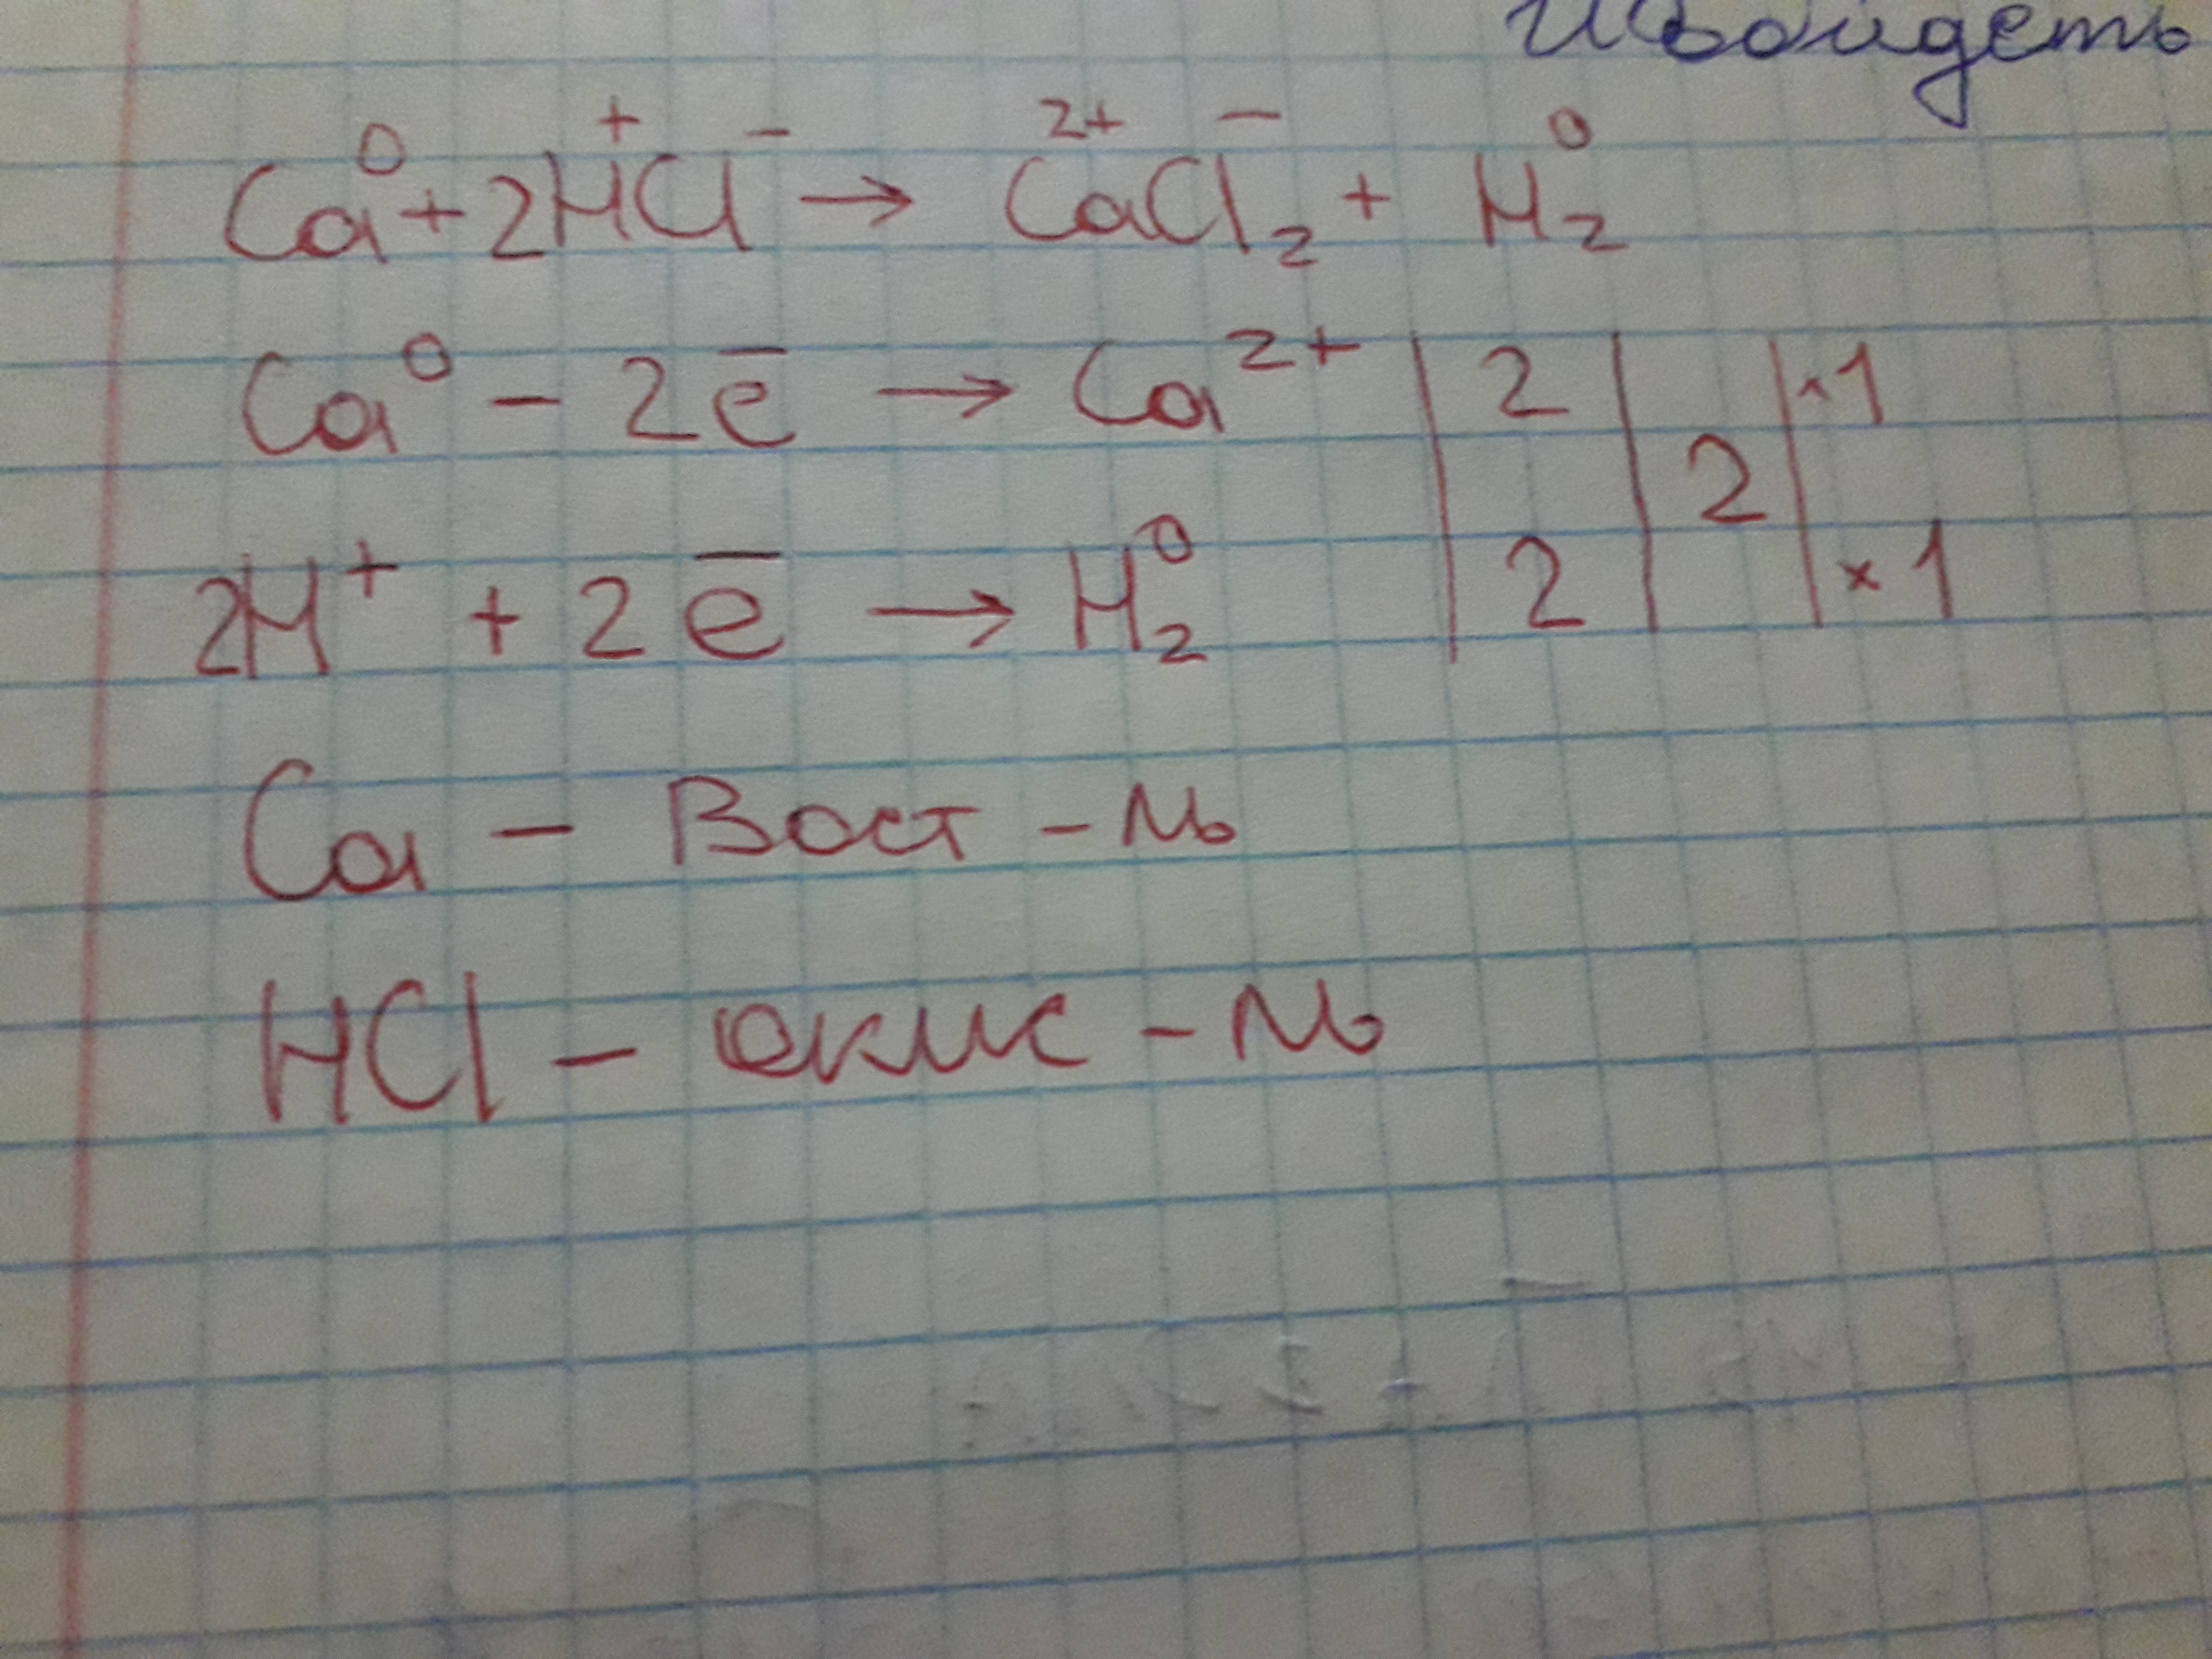 Ca⁰ + 2H⁺Cl⁻ → Ca²⁺Cl⁻₂ + H₂⁰
Ca⁰ - 2ē → Ca²⁺ | 2 | | ×1
2
2H⁺ + 2ē → H₂⁰ | 2 | | ×1
Ca - Вост - ль
HCl - окис - ль